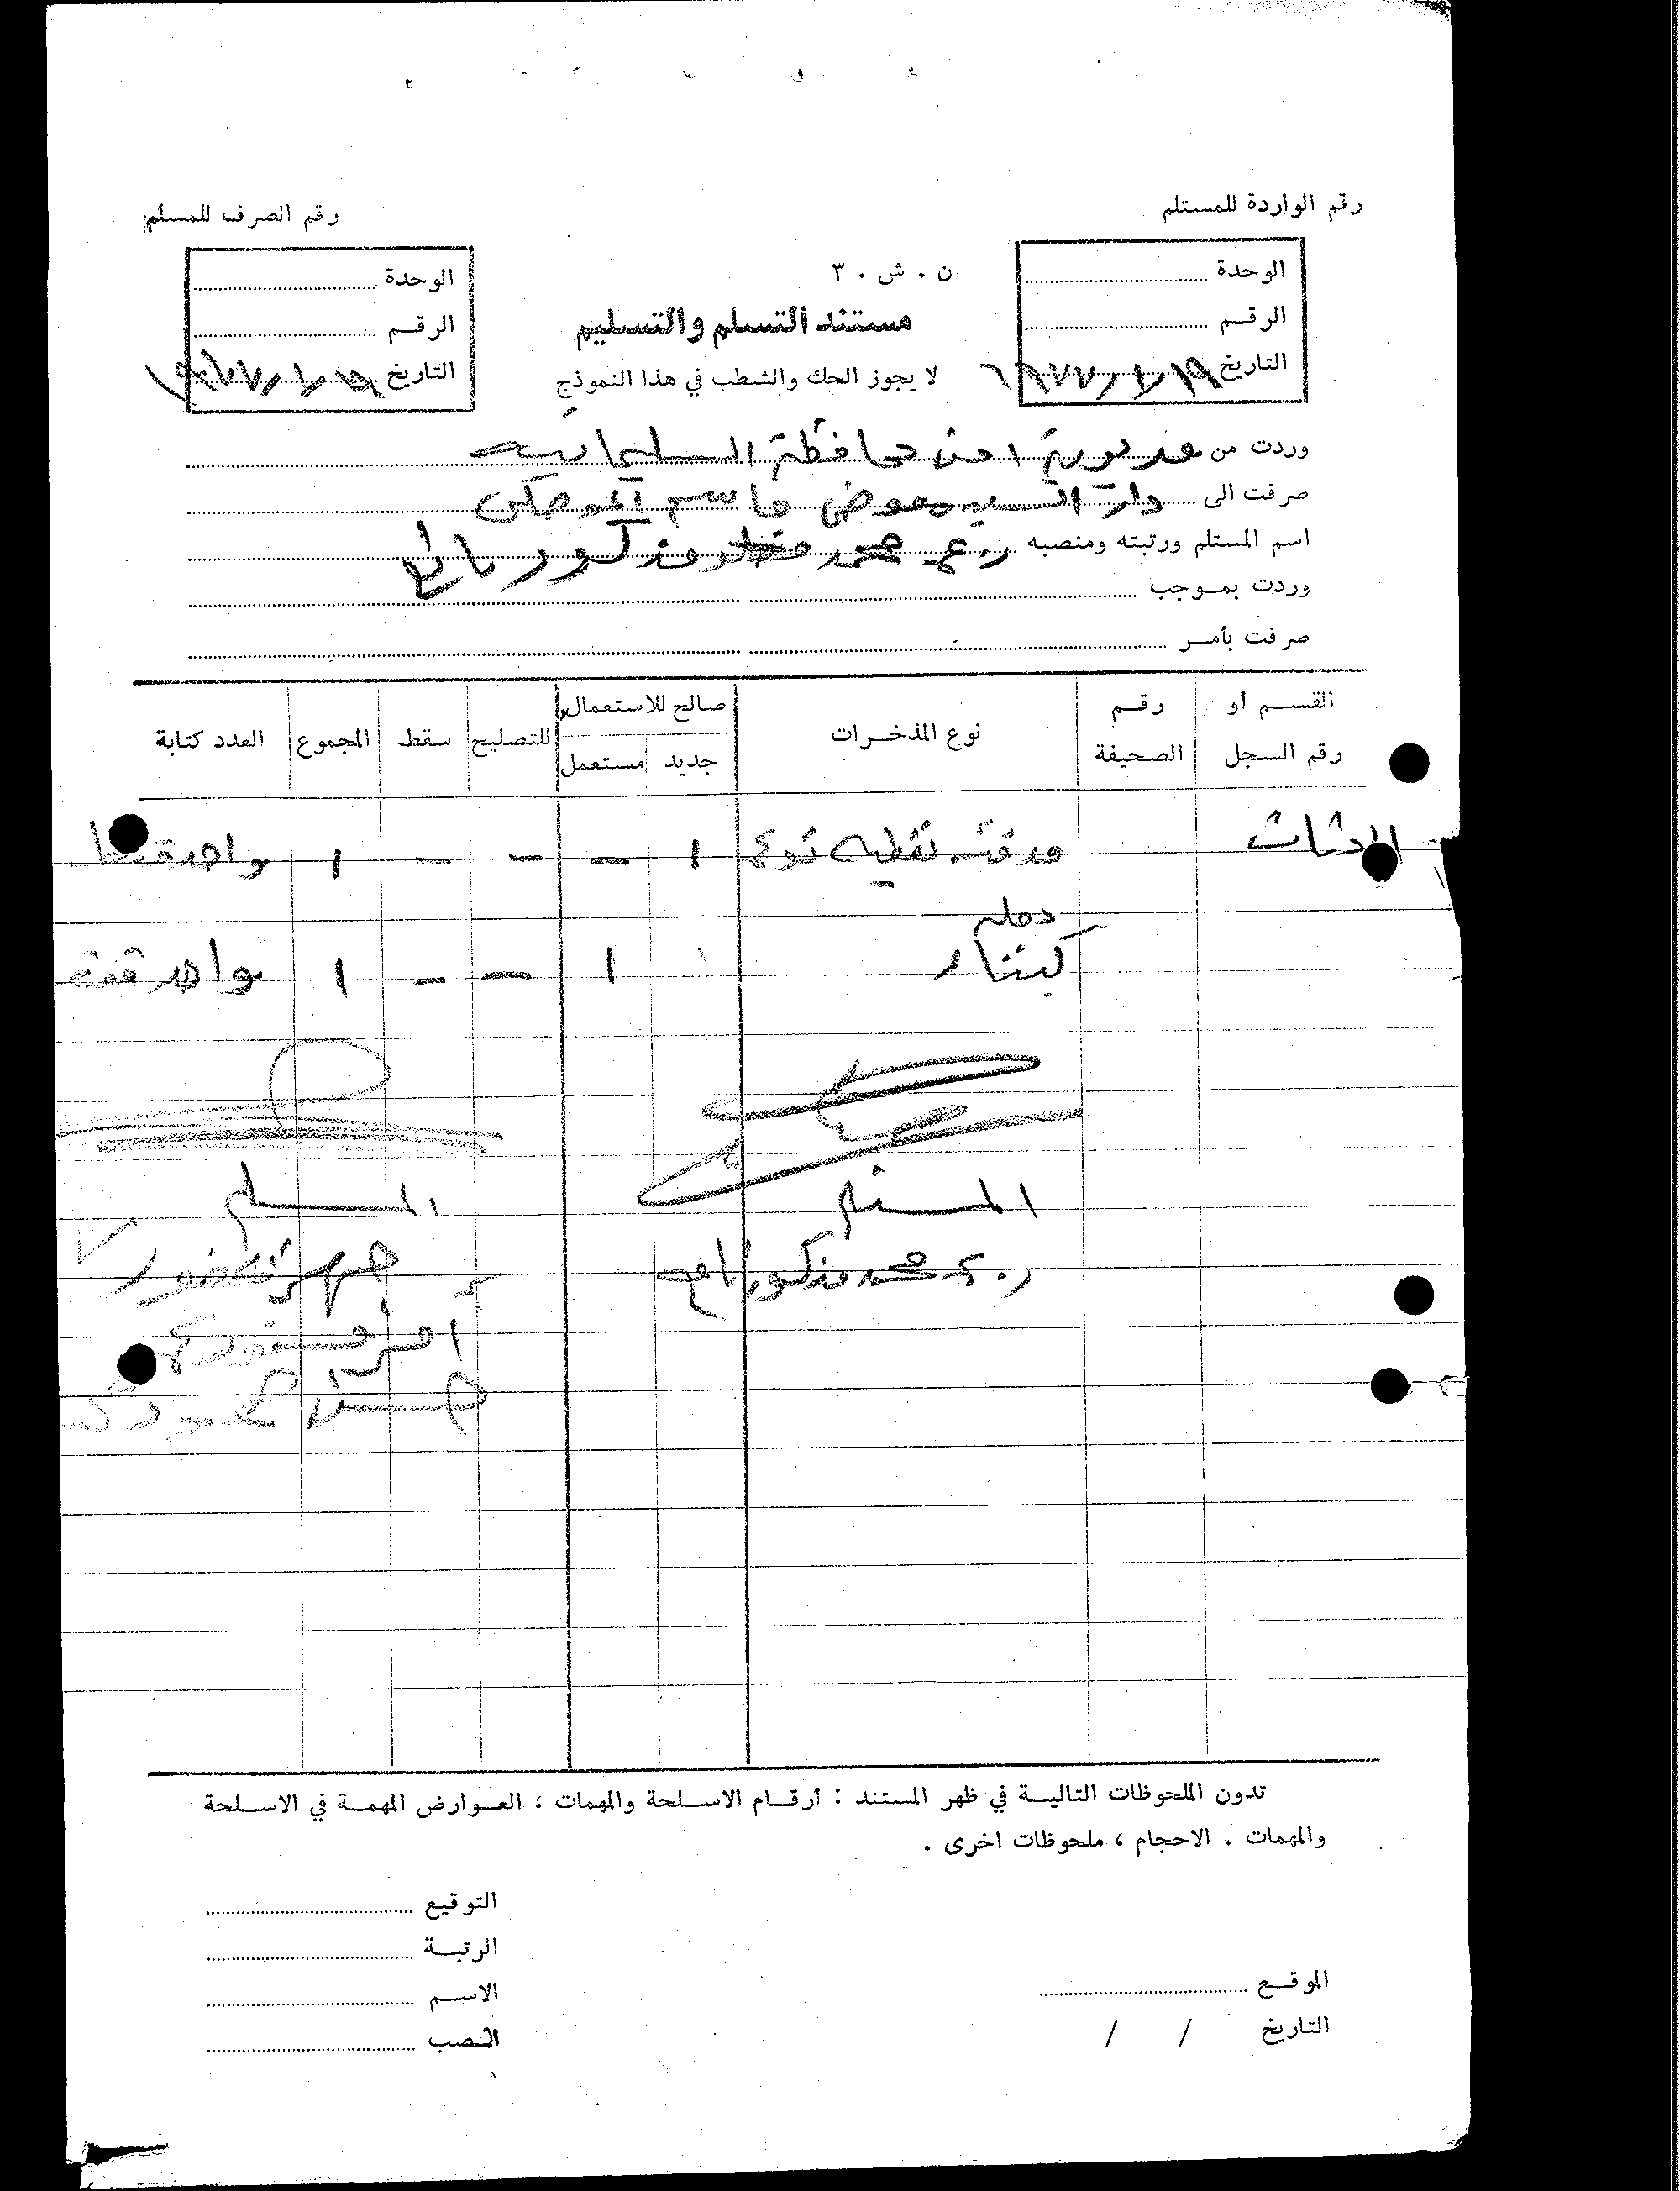 رقم الواردة للمستلم
رقم الصرف للمسلم
الوحدة
الرقم
التاريخ
ن . ش . ٣٠
مستند التسلم والتسليم
لا يجوز الحك والشطب في هذا النموذج
الوحدة
الرقم
التاريخ
وردت من مديرية امن محافظة السليمانية
صرفت الى دار السيد معوض قاسم
اسم المستلم ورتبته ومنصبه ر.ع محمد مذكور
وردت بموجب
صرفت بأمر
القسم أو رقم السجل
رقم الصحيفة
نوع المذخرات
صالح للاستعمال
جديد
مستعمل
للتصليح
سقط
المجموع
العدد كتابة
الاثاث
مدفئة نفطية نوع ١ - - - ١ واحد فقط
كنتار ١ - - ١ واحد فقط
المستلم
ر.ع محمد مذكور
المسلم
تدون الملحوظات التالية في ظهر المستند : أرقام الاسلحة والمهمات ، العوارض المهمة في الاسلحة
والمهمات . الاحجام ، ملحوظات اخرى .
التوقيع
الرتبة
الاسم
المنصب
الموقع
التاريخ / /